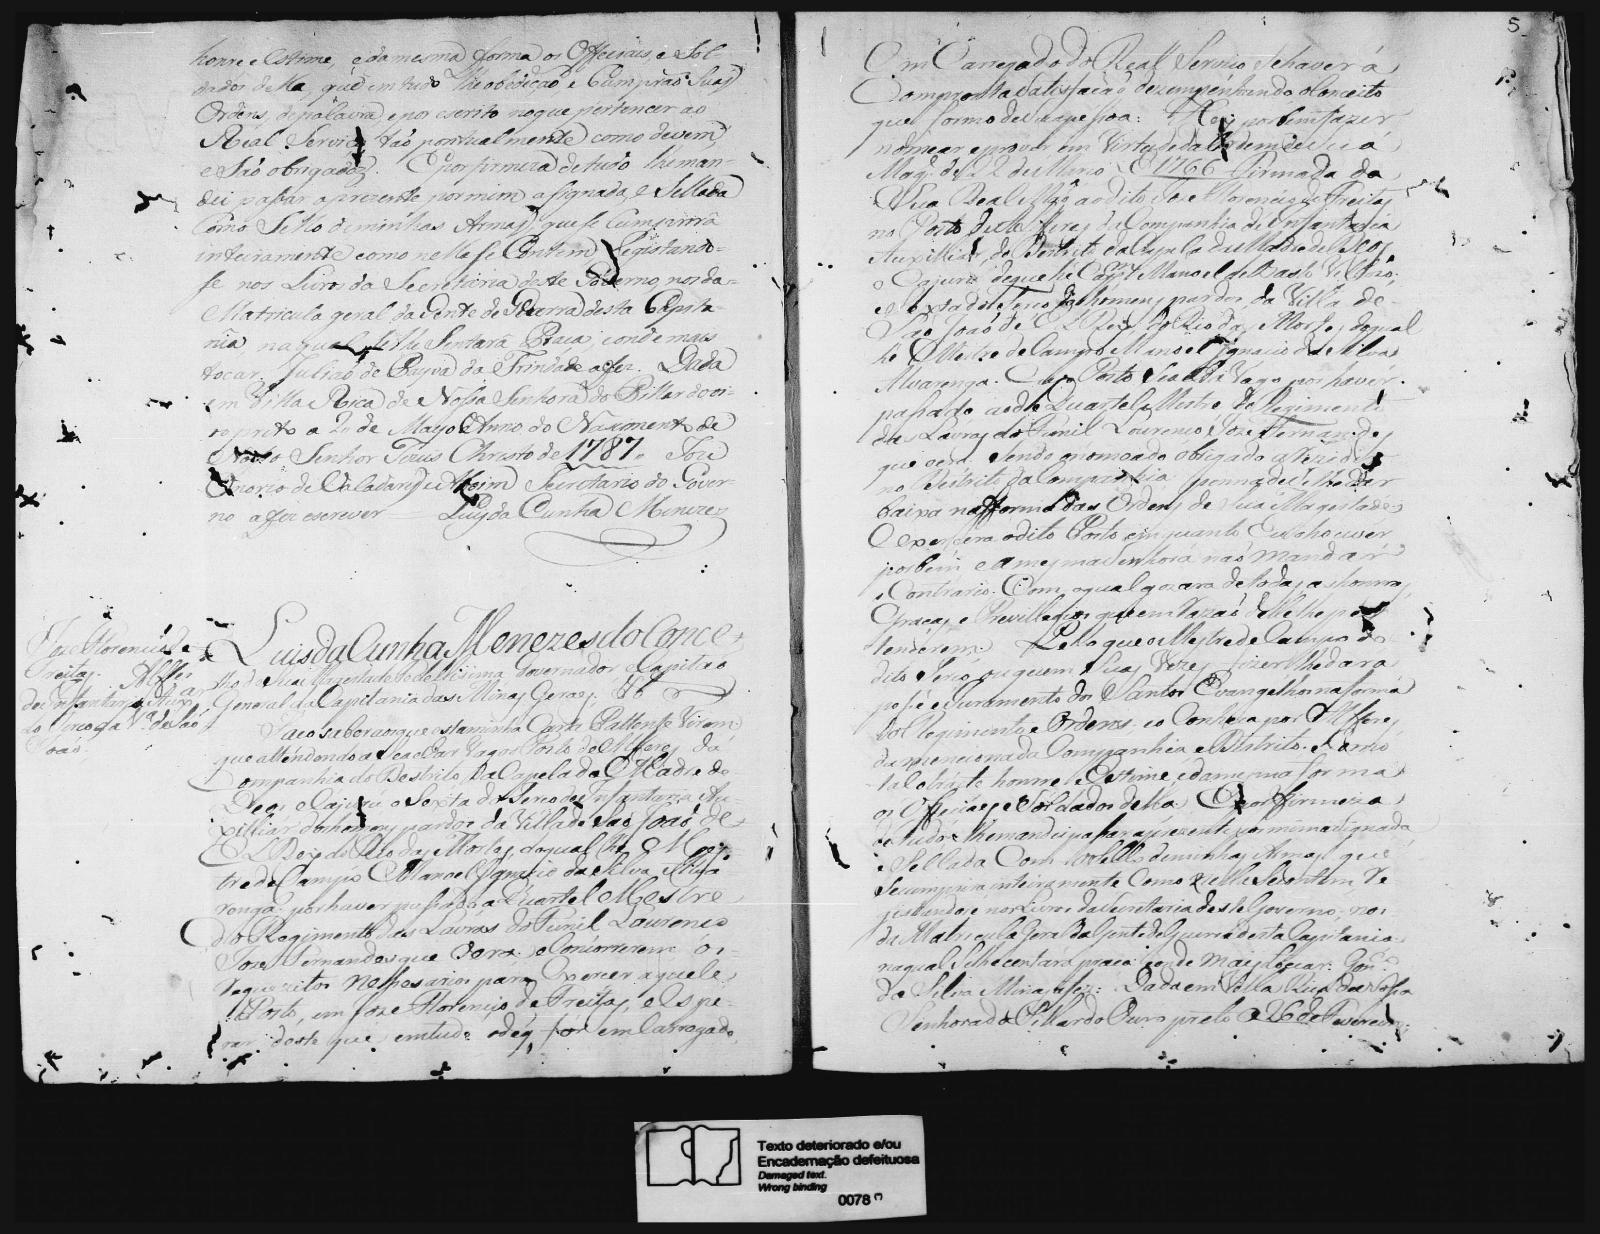 honre e Estime, e da mesma forma os Officiais, e Sol
dados della, que em tudo lhe obedeção e Cumprão Suas
Ordens, de palavra, e por escrito no que pertencer ao
Real Serviço tão pontualmente como devem,
e São obrigados. E por firmeza de tudo lhe man-
dei passar a prezente por mim asignada, e Sellada
Como Sello de minhas Armas, que se Cumprirá
inteiramente como nella se Contem, Registando-
se nos Livros da Secretaria deste Governo, nos da
Matricula geral da Gente de Guerra desta Capita-
nia, na qual se lhe Sentará Praça, e onde mais
tocar. Julião de Payva da Trindade a fez. Dada
em Villa Rica de Nossa Senhora do Pillar do oi-
ro preto a 2 de Mayo Anno do Nascimento de
Nosso Senhor Jezus Christo de 1787. Joze
Onorio de Valadares e Aboim Secretario do Gover-
no a fez escrever Luis da Cunha Menezes
Joze Florencio de
Freitas. Alfes
de Infantaria Aux
do Terço da Va. de São
João.
Luis da Cunha Menezes do Conce-
lho de Sua Magestade Fidelissima Governador e Capitão
General da Capitania das Minas Geraes. &
Faço saber aos que esta minha Carta Patente Virem
que attendendo a Se achar Vago o Posto de Alferes da
Companhia do Destrito da Capela da Madre de
Deos e Cajurú e Sexta do Terço de Infantaria Au-
xilliar dos homens pardos da Villa de São João de
El Rey do Rio das Mortes, do qual he Mes-
tre de Campo Manoel Ignacio da Silva Alva
renga, por haver passado a Quartel Mestre
do Regimento das Lavras do Funil Lourenço
Joze Fernandes que o era e Concorrerem os
requezitos nessesarios para Exercer aquele
Posto, em Joze Florencio de Freitas, e Espe-
rar deste que em tudo o de q. for em Carregado
5
Em Carregado do Real Serviço Se haverá
Com prompta Satisfação dezempenhando o Conceito
que formo de sua pessoa: Hey por bem fazer
nomear e prover em Virtude da Ordem de Sua
Mag. de 22 de Março de 1766 firmada da
Sua Real Mão ao dito Joze Florencio de Freitas
no Posto de Alferes da Companhia de Infantaria
Auxilliar do Destrito da Capela da Madre de Deos
e Cajurú de que he Capm. Manoel de Basto
e Sexta do Terço dos Homens pardos da Villa de
São João de El Rey do Rio das Mortes, do qual
he Mestre de Campo Manoel Ignacio da Silva
Alvarenga. Cujo Posto Se acha Vago por haver
passado ao de Quartel Mestre do Regimento
das Lavras do Funil Lourenço Joze Fernandes
que o era. Sendo o nomeado obrigado a rezidir
no Destrito da Companhia penna de Se lhe dar
baixa na forma das Ordens de Sua Magestade
Exercera o dito Posto em quanto Eu o houver
por bem e a mesma Senhora não mandar
o Contrario. Com o qual gozara de todas as honras
Graças, e Previllegios que em razão delle lhe per
tencerem: Pello que o Mestre de Campo do
dito Terço ou quem Suas Vezes fizer lhe dara
posse e Juramento dos Santos Evangelhos na forma
do Regimento e Ordens, e o Conheça por Alferes
da mencionada Companhia e Destrito, e Como
tal o trate honre e Estime e da mesma forma
os Officiaes e Soldados della. E por firmeza
de tudo lhe mandei passar a prezente por mim asignada
e Sellada Com o Sello de minhas Armas que
Se cumprira inteiramente Como nelle Se contem, Re
gistandose nos Livros da Secretaria deste Governo, nos
da Matricula Geral da Gente de Guerra desta Capitania
na qual Se lhe centara praça e onde mais tocar: Gonco.
da Silva Minas a fez: Dada em Villa Rica de Nossa
Senhora do Pillar do Ouro preto a 26 de Fevereiro
Texto deteriorado e/ou
Encadernação defeituosa
Damaged text.
Wrong binding
0078